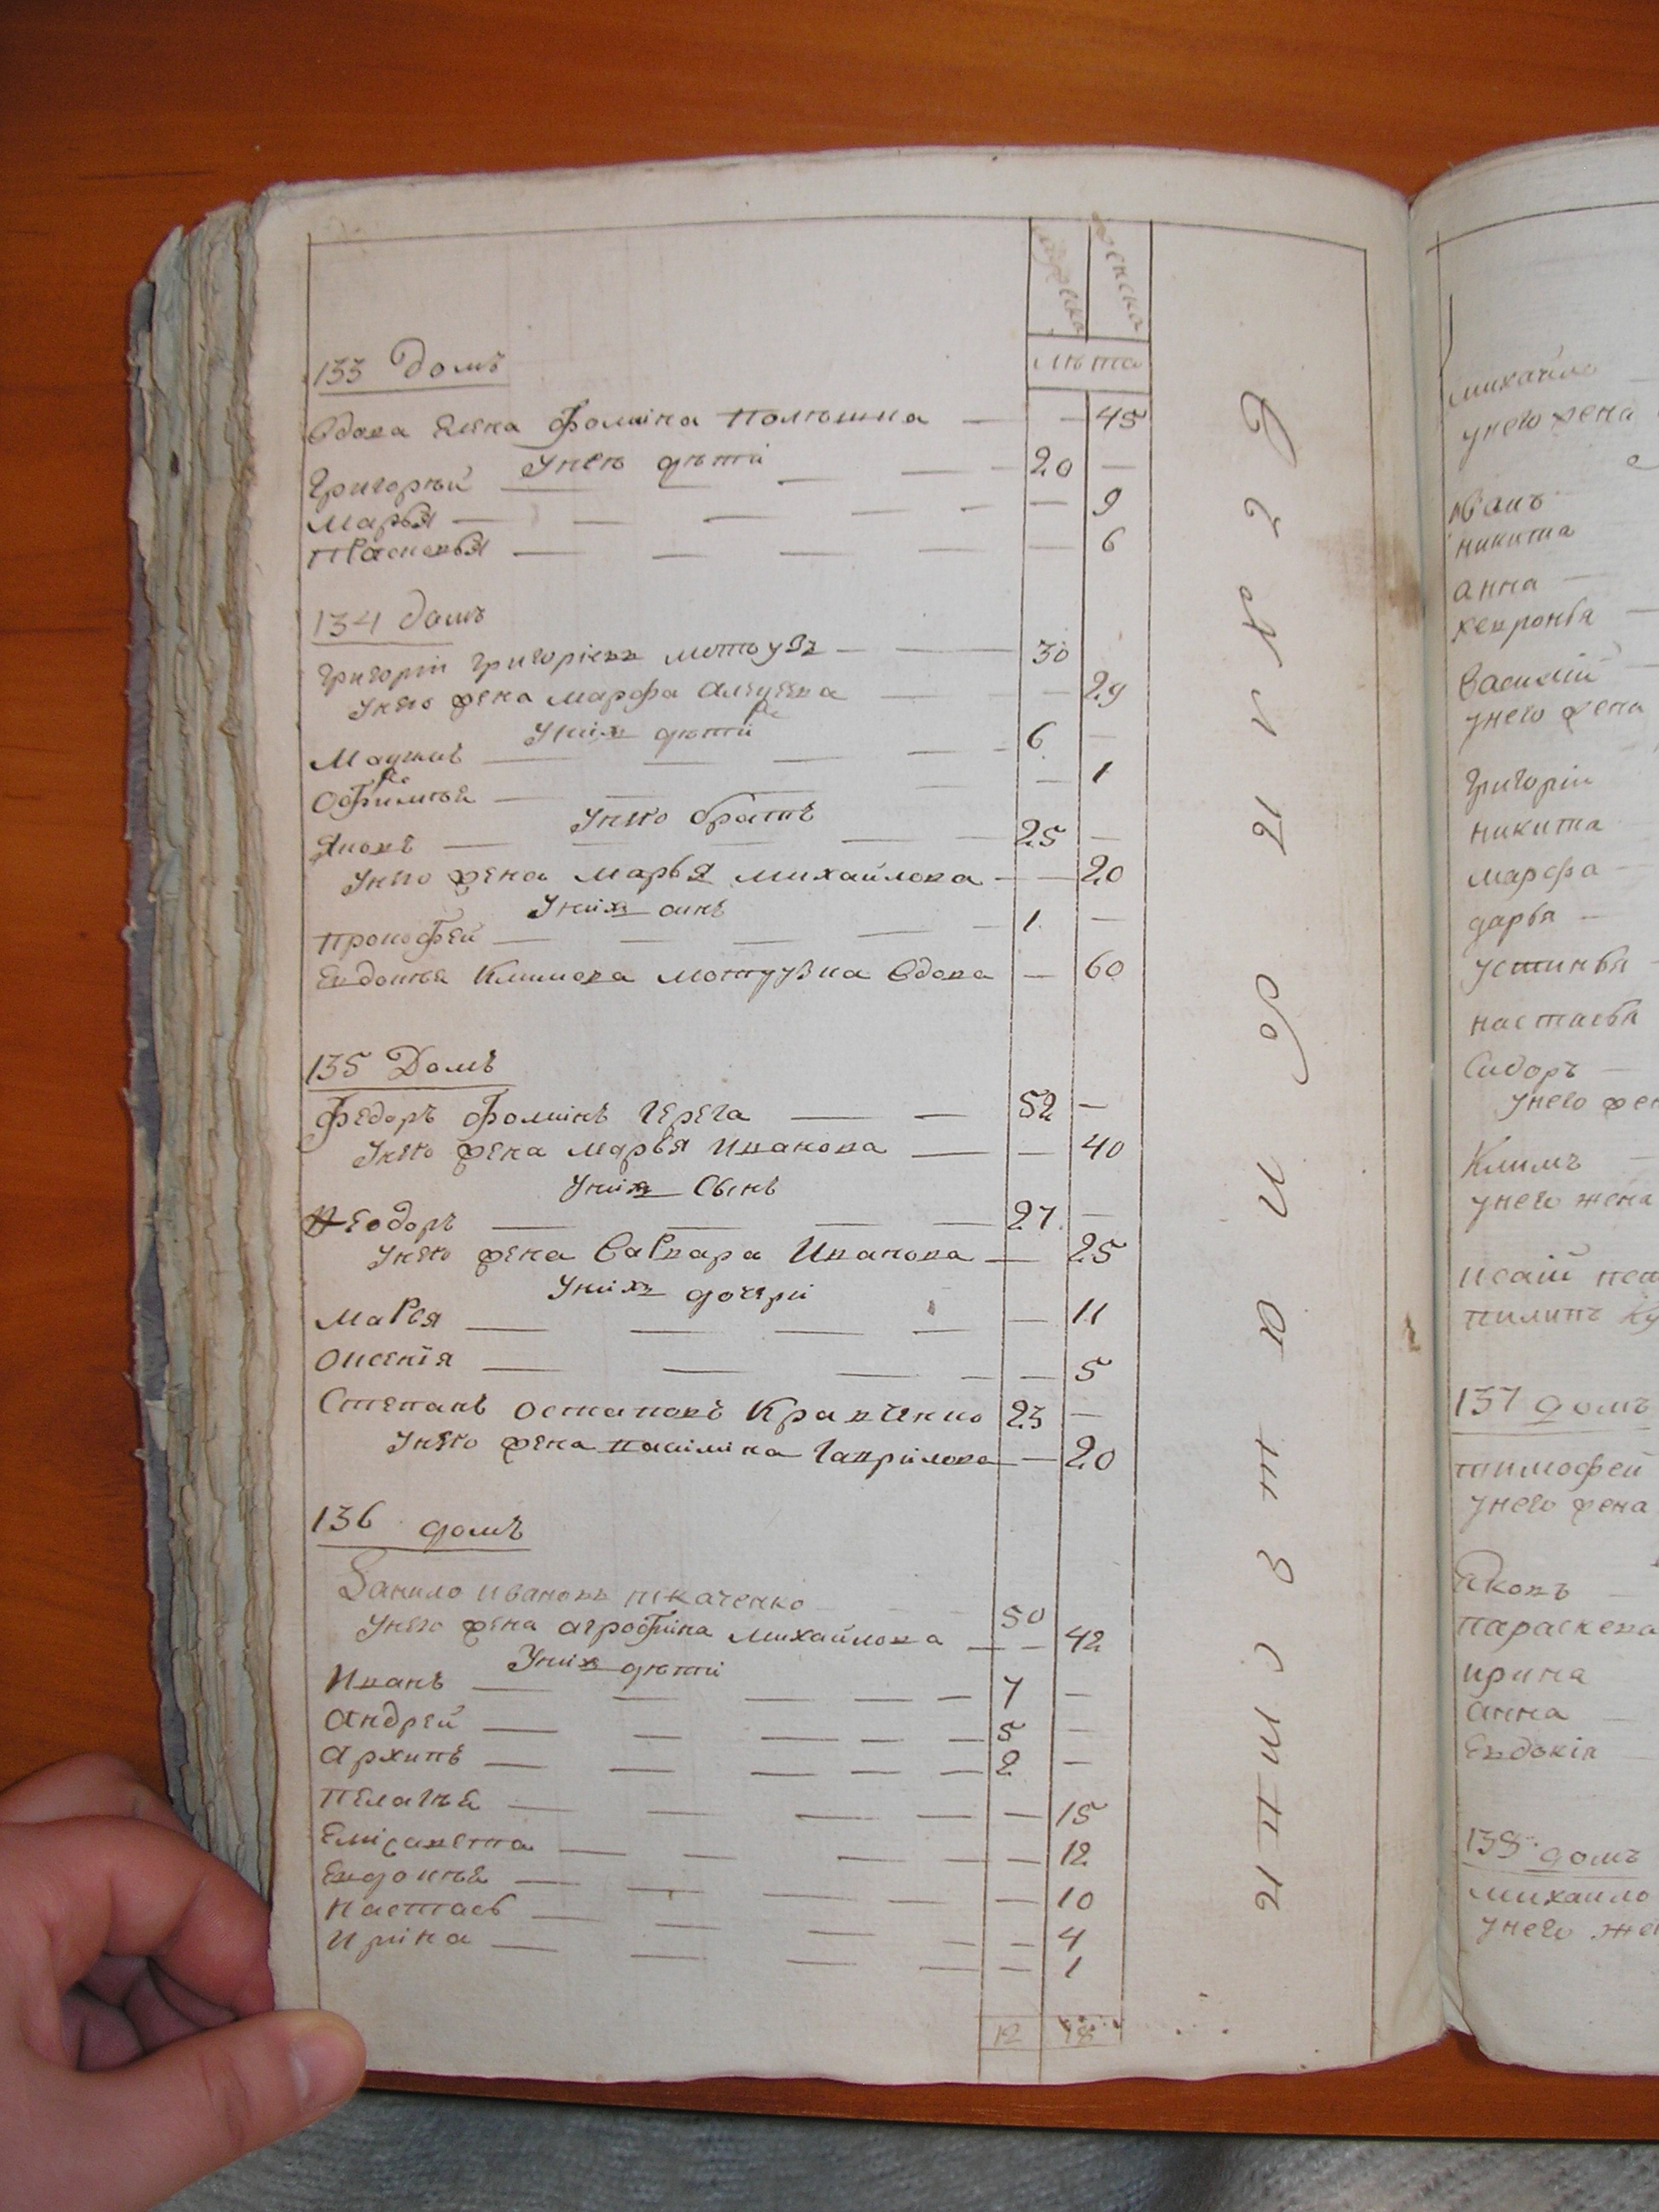 мужска женска
лѣта
133 домъ
Вдова Елена Фомина 45
Унея дѣти
Григорѣй 20
Марья 9
Парасковья 6
134 домъ
Григорій Григоріевъ Мотузъ 30
Унего жена Марфа 29
Унихъ дѣти
6
Офимья 1
Унего братъ
Яковъ 25
Унего жена Марья Михайлова 20
Унихъ синъ
Прокофей 1
Евдокия Климова Мотузка вдова 60
135 Домъ
Федоръ Фоминъ Герега 52
Унего жена Марья Иванова 40
Унихъ сынъ
Феодоръ 27
Унего жена Варвара Иванова 25
Унихъ дочери
Марья 11
Оксенія 5
Степанъ Остаповъ Кравченко 23
Унего жена Гаврилова 20
136 домъ
Данило Ивановъ Ткаченко 50
Унего жена Агрофина Михайлова 42
Унихъ дѣти
Иванъ 7
Андрей 5
Архипъ 2
Пелагея 15
Елисавета 12
Евдокия 10
Настася 4
Ирина 1
12 18
михайло
унего жена
иванъ
никита
анна
хевронья
василій
унего жена
григорій
никита
марфа
дарья
устинья
настасья
Сидоръ
унего жен
Климъ
унего жена
исаій
пилипъ
137 домъ
тимофей
унего жена
яковъ
параскева
ирина
анна
Евдокія
138 домъ
михаило
унего же